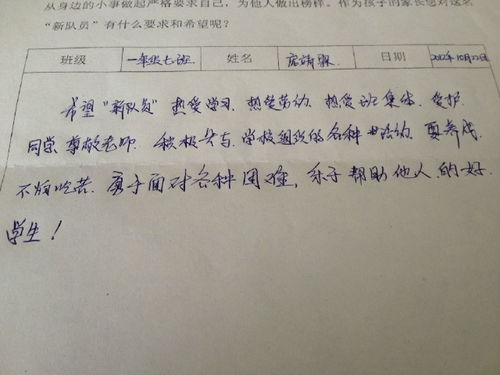 从身边的小事做起严格要求自己，为他人做出榜样。作为孩子的家长您对这名
“新队员”有什么要求和希望呢？
班级 一年级七班 姓名 日期 2012年10月22日
希望“新队员”热爱学习、热爱劳动、热爱班集体、爱护
同学、尊敬老师、积极参与、学校组织的各种活动、要养成
不怕吃苦、勇于面对各种困难，乐于帮助他人的好
学生！